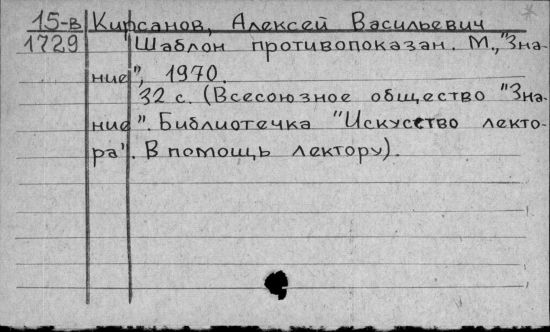 15-в Кирсанов, Алексей Васильевич
1729 Шаблон противопоказан. М., "Зна-
ние", 1970.
32 с. (Всесоюзное общество "Зна-
ние". Библиотечка "Искусство лекто-
ра". В помощь лектору).